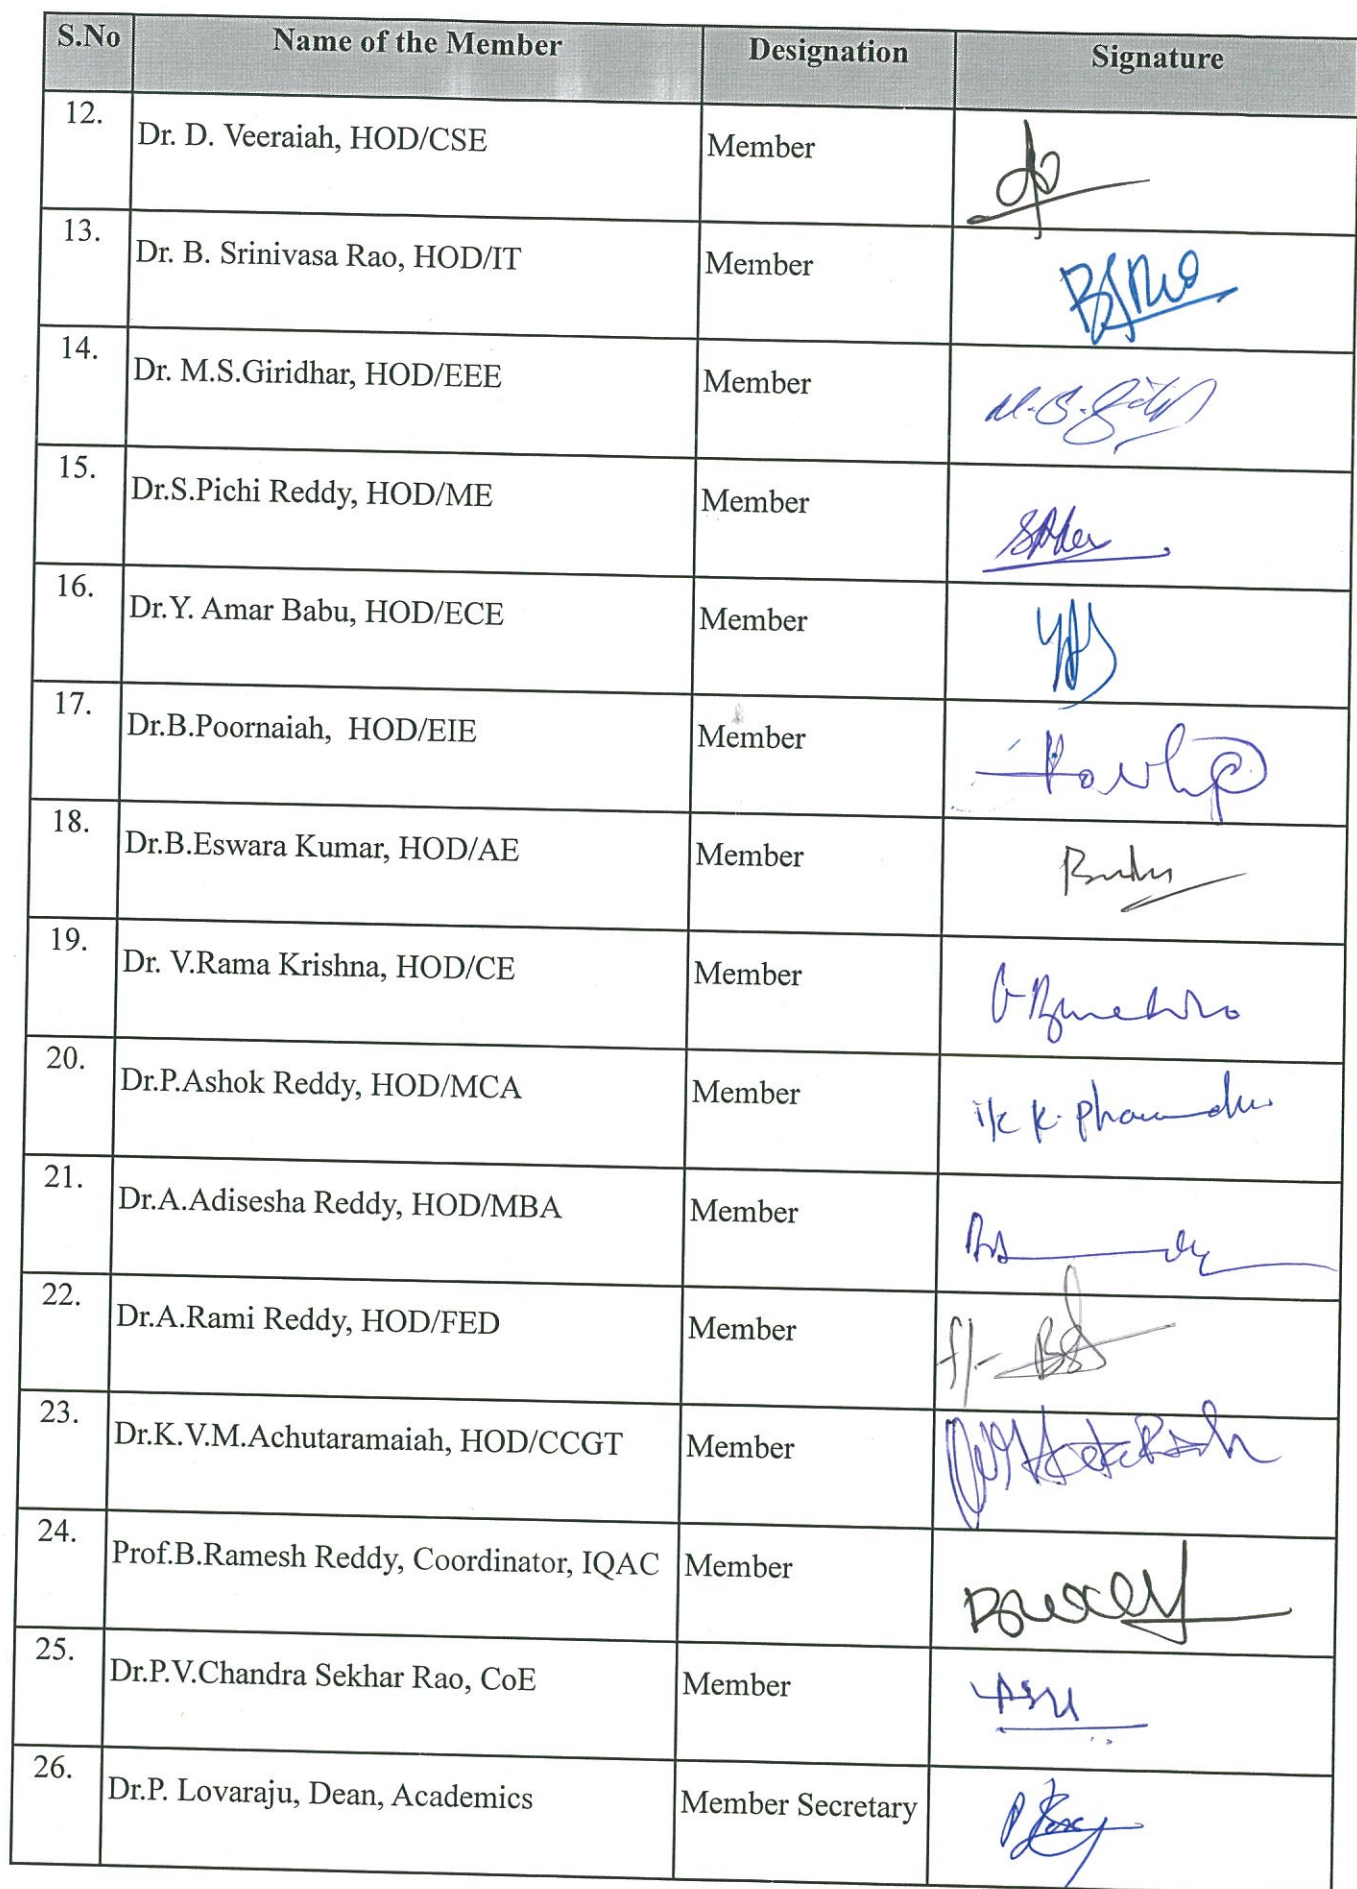 S.No Name of the Member Designation Signature
12. Dr. D. Veeraiah, HOD/CSE Member
13. Dr. B. Srinivasa Rao, HOD/IT Member BSRao
14. Dr. M.S.Giridhar, HOD/EEE Member
15. Dr.S.Pichi Reddy, HOD/ME Member
16. Dr.Y. Amar Babu, HOD/ECE Member
17. Dr.B.Poornaiah, HOD/EIE Member
18. Dr.B.Eswara Kumar, HOD/AE Member
19. Dr. V.Rama Krishna, HOD/CE Member
20. Dr.P.Ashok Reddy, HOD/MCA Member
21. Dr.A.Adisesha Reddy, HOD/MBA Member
22. Dr.A.Rami Reddy, HOD/FED Member
23. Dr.K.V.M.Achutaramaiah, HOD/CCGT Member
24. Prof.B.Ramesh Reddy, Coordinator, IQAC Member
25. Dr.P.V.Chandra Sekhar Rao, CoE Member
26. Dr.P. Lovaraju, Dean, Academics Member Secretary